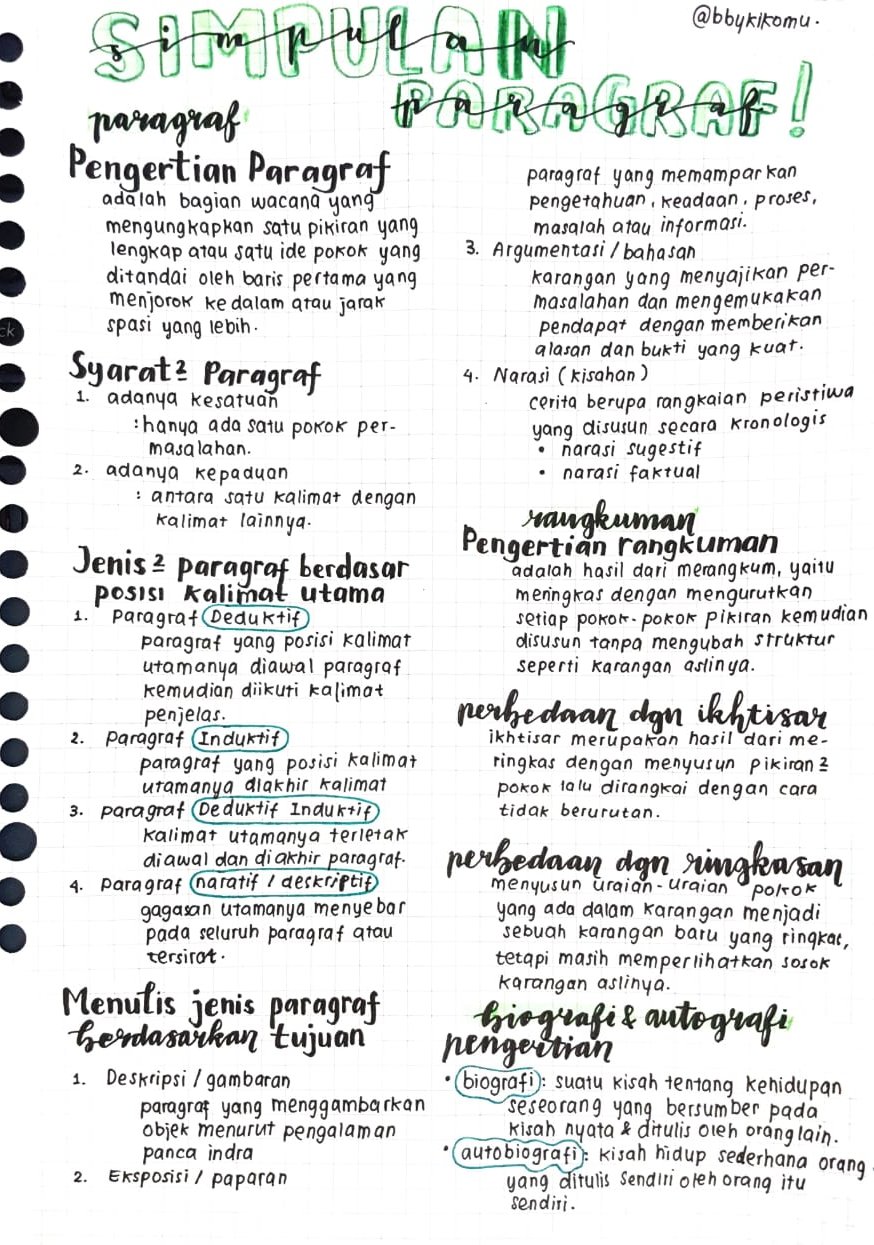 @bbykikomu.
SIMPULAN
simpulan
PARAGRAF!
paragraf
paragraf
Pengertian Paragraf
adalah bagian wacana yang
mengungkapkan satu pikiran yang
lengkap atau satu ide pokok yang
ditandai oleh baris pertama yang
menjorok kedalam atau jarak
spasi yang lebih.
Syarat² Paragraf
1. adanya kesatuan
: hanya ada satu pokok per-
masalahan.
2. adanya kepaduan
: antara satu kalimat dengan
kalimat lainnya.
Jenis² paragraf berdasar
posisi kalimat utama
1. Paragraf Deduktif
paragraf yang posisi kalimat
utamanya diawal paragraf
kemudian diikuti kalimat
penjelas.
2. Paragraf Induktif
paragraf yang posisi kalimat
utamanya diakhir kalimat
3. paragraf Deduktif Induktif
kalimat utamanya terletak
diawal dan diakhir paragraf.
4. Paragraf naratif / deskriptif
gagasan utamanya menyebar
pada seluruh paragraf atau
tersirat.
Menulis jenis paragraf
berdasarkan tujuan
1. Deskripsi / gambaran
paragraf yang menggambarkan
objek menurut pengalaman
panca indra
2. Eksposisi / paparan
paragraf yang memamparkan
pengetahuan, keadaan, proses,
masalah atau informasi.
3. Argumentasi / bahasan
karangan yang menyajikan per-
masalahan dan mengemukakan
pendapat dengan memberikan
alasan dan bukti yang kuat.
4. Narasi (kisahan)
cerita berupa rangkaian peristiwa
yang disusun secara kronologis
• narasi sugestif
• narasi faktual
rangkuman
Pengertian rangkuman
adalah hasil dari merangkum, yaitu
meringkas dengan mengurutkan
setiap pokok-pokok pikiran kemudian
disusun tanpa mengubah struktur
seperti karangan aslinya.
perbedaan dgn ikhtisar
ikhtisar merupakan hasil dari me-
ringkas dengan menyusun pikiran²
pokok lalu dirangkai dengan cara
tidak berurutan.
perbedaan dgn ringkasan
menyusun uraian-uraian pokok
yang ada dalam karangan menjadi
sebuah karangan baru yang ringkat,
tetapi masih memperlihatkan sosok
karangan aslinya.
biografi & autografi
pengertian
• biografi: suatu kisah tentang kehidupan
seseorang yang bersumber pada
kisah nyata & ditulis oleh orang lain.
• autobiografi: kisah hidup sederhana orang
yang ditulis sendiri oleh orang itu
sendiri.
ck